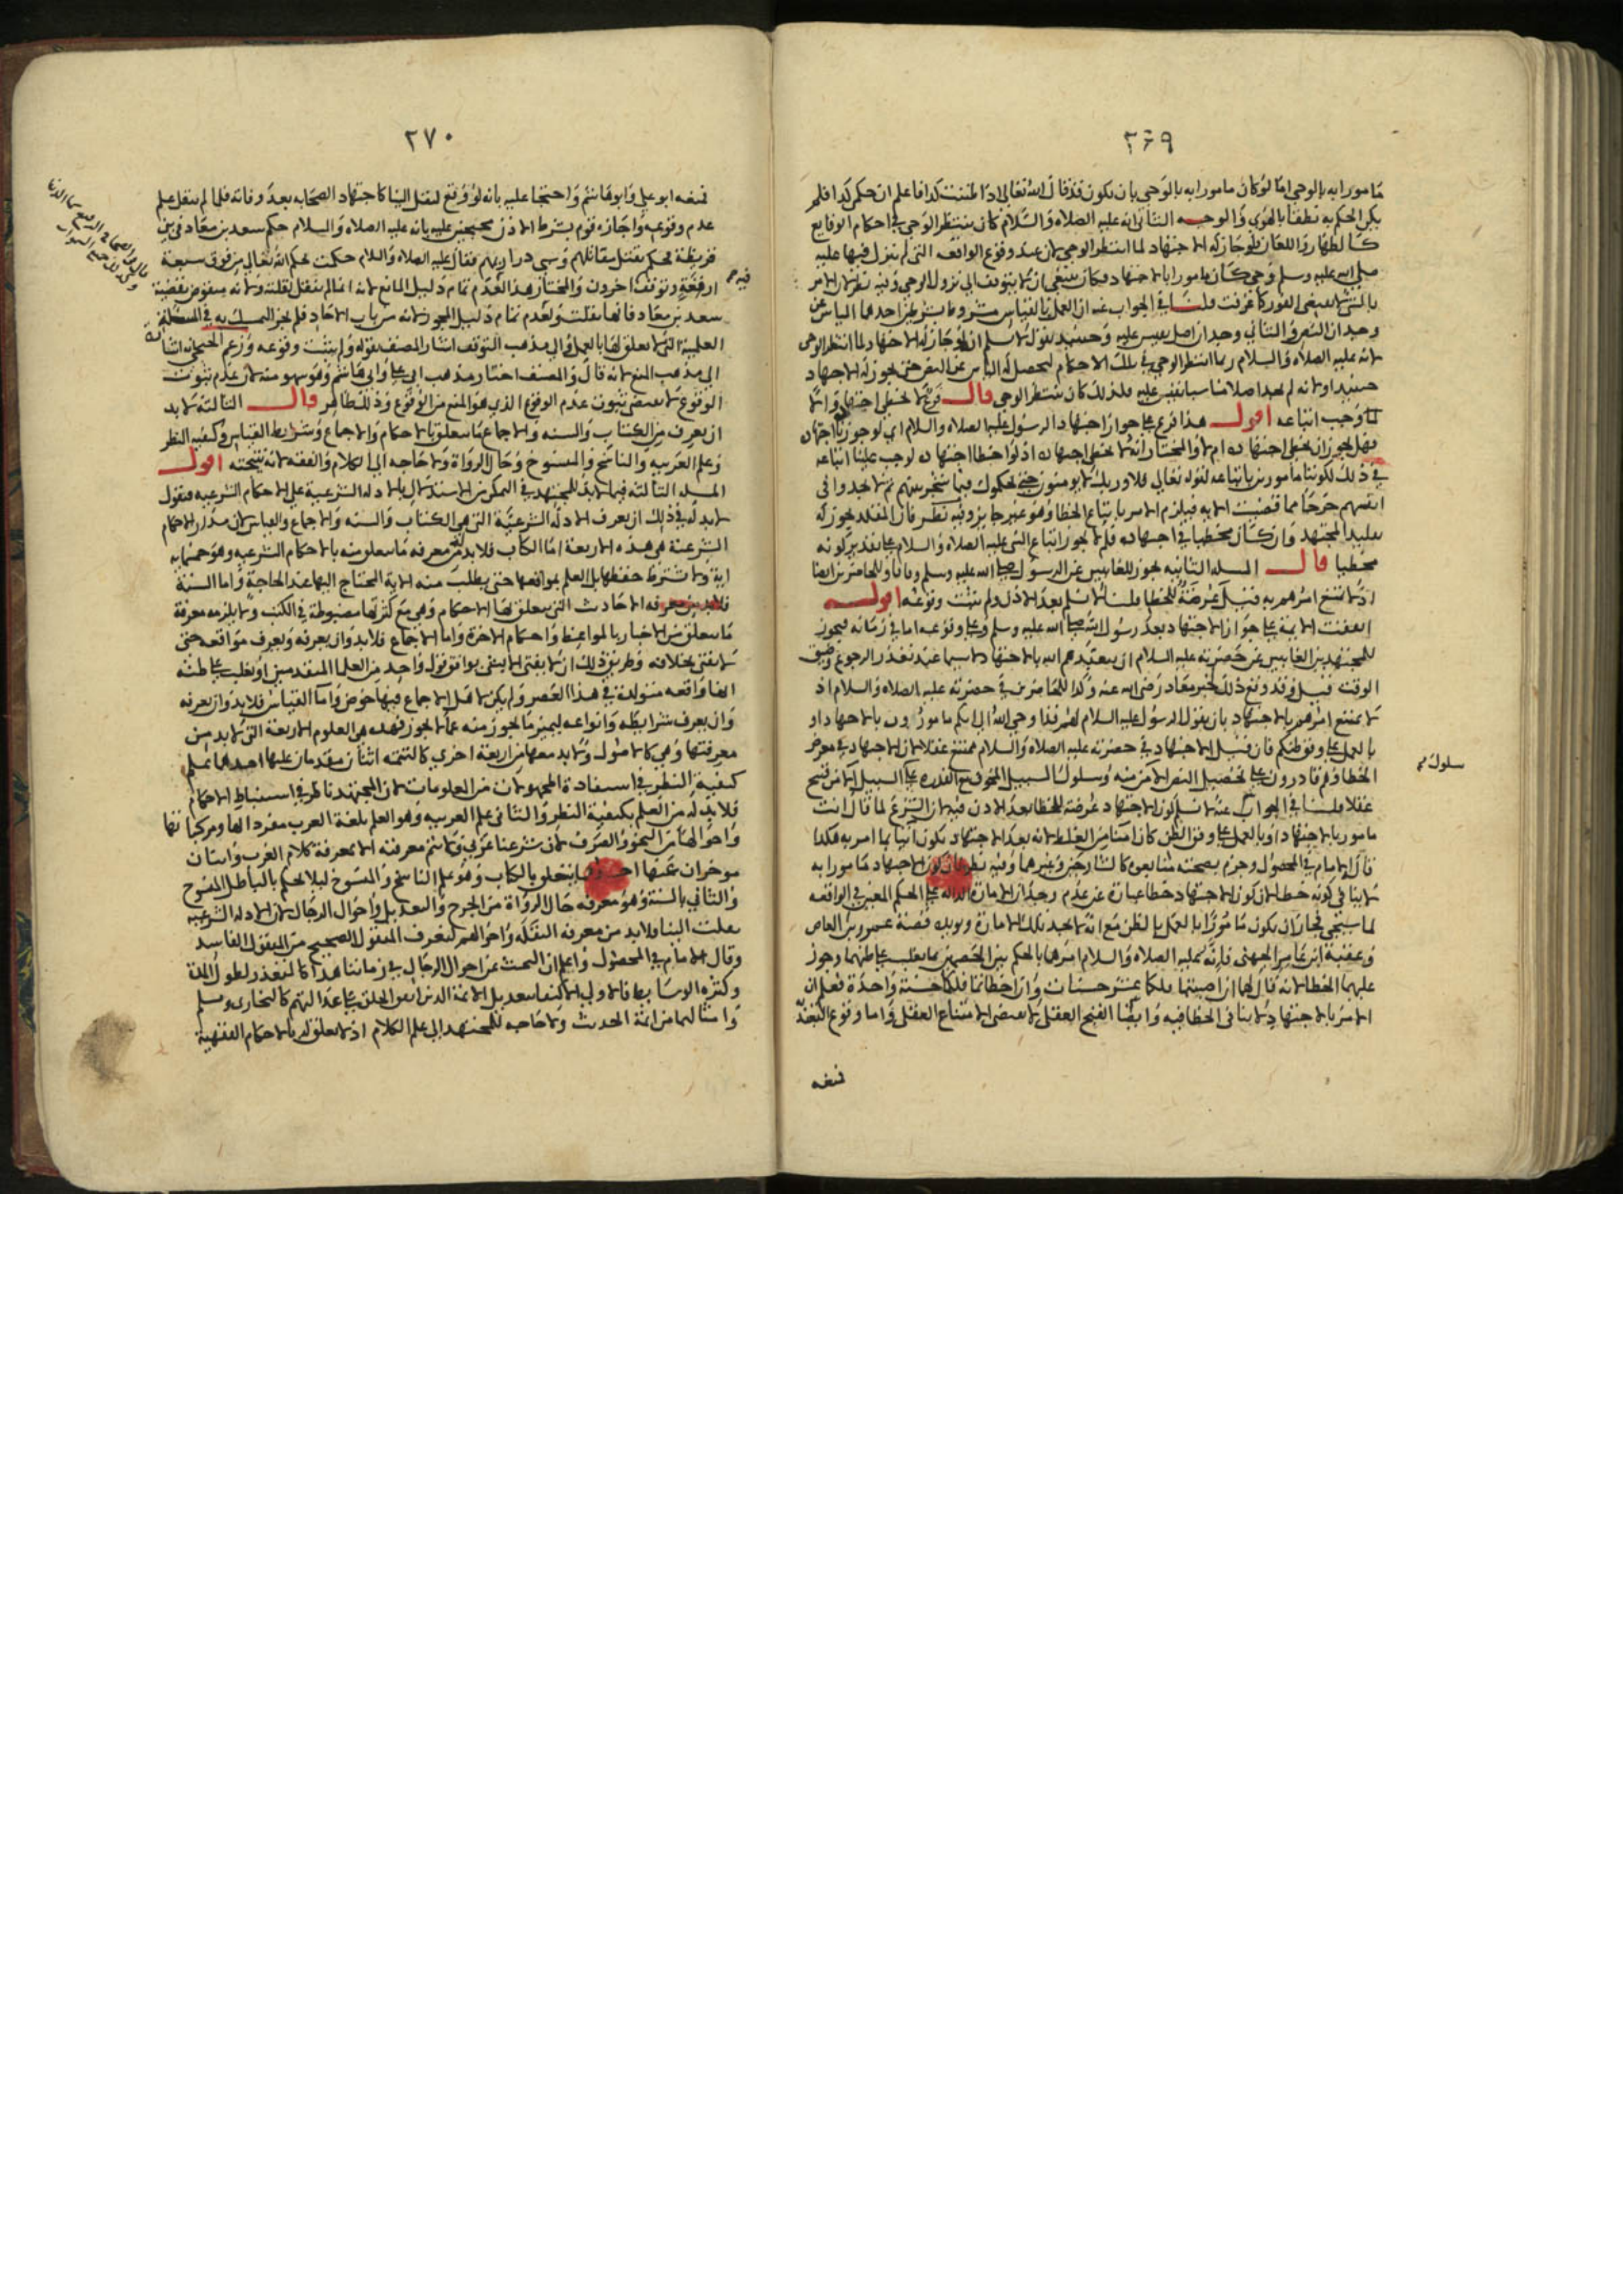 ٢٦٩
مامورا به بالوحي اما لو كان مامورا به بالوحي بان يكون قد قال الله تعالى اذا ظننت كذا فاعلم ان حكمي كذا فلم
يكن الحكم به نطقا بالهوى والوجه الثاني انه عليه الصلاه والسلام كان ينتظر الوحي في احكام الوقايع
كالظهار واللعان ولو جاز له الاجتهاد لما انتظر الوحي لان عند وقوع الواقعه التي لم ينزل فيها عليه
صلى الله عليه وسلم وحي كان مامورا بالاجتهاد فكان ينبغي ان لا يتوقف الى نزول الوحي وفيه نظر لان الامر
بالشي لا يقتضي الفور كما عرفت قلنا في الجواب عنه ان العمل بالقياس مشروط بشرطين احدهما الياس عن
وجدان النص والثاني وجدان اصل يقيس عليه وحينئذ نقول لا نسلم انه لو جاز له الاجتهاد لما انتظر الوحي
لانه عليه الصلاه والسلام ربما انتظر الوحي في تلك الاحكام ليحصل له الياس عن النص حتى يجوز له الاجتهاد
حينئذ او لانه لم يجد اصلا مناسبا يقيس عليه فلذلك كان ينتظر الوحي قال فرع لا يخطي اجتهاده والا
لما وجب اتباعه اقول هذا فرع على جواز اجتهاد الرسول عليه الصلاه والسلام اي لو جوزنا اجتهاده
فهل يجوز ان يخطي اجتهاده ام لا والمختار انه لا يخطي اجتهاده اذ لو اخطا اجتهاده لوجب علينا اتباعه
في ذلك لكوننا مامورين باتباعه لقوله تعالى فلا وربك لا يومنون حتى يحكموك فيما شجر بينهم ثم لا يجدوا في
انفسهم حرجا مما قضيت الايه فيلزم الامر باتباع الخطا وهو غير جايز وفيه نظر فان المقلد يجوز له
تقليد المجتهد وان كان مخطيا في اجتهاده فلم لا يجوز اتباع النبي عليه الصلاه والسلام على تقدير كونه
مخطيا قال المسله الثانيه يجوز للغايبين عن الرسول صلى الله عليه وسلم وفاقا وللحاضرين ايضا
اذ لا يمتنع امرهم به قيل عرضة للخطا قلنا لا نسلم بعد الاذن ولم يثبت وقوعه اقول
اتفقت الايمة على جواز الاجتهاد بعد رسول الله صلى الله عليه وسلم وعلى وقوعه اما في زمانه فيجوز
للمجتهدين الغايبين عن حضرته عليه السلام ان يتعبدهم الله بالاجتهاد لا سيما عند تعذر الرجوع وضيق
الوقت قيل وقد وقع ذلك لخبر معاذ رضي الله عنه وكذا للحاضرين في حضرته عليه الصلاه والسلام اذ
لا يمتنع امرهم بالاجتهاد بان يقول الرسول عليه السلام لهم قد اوحي الله الي انكم مامورون بالاجتهاد او
بالعمل على وفق ظنكم فان قيل الاجتهاد في حضرته عليه الصلاه والسلام ممتنع عقلا لان الاجتهاد في معرض
الخطا وهم قادرون على تحصيل النص الآمن منه وسلوك السبيل المخوف مع القدره على السبيل الآمن قبيح
عقلا قلنا في الجواب عنه لا نسلم كون الاجتهاد عرضة للخطا بعد الاذن فيه لان الشرع لما قال انت
مامور بالاجتهاد او بالعمل على وفق الظن كان امنا من الغلط لانه بعد الاجتهاد يكون آتيا بما امر به هكذا
قال الامام في المحصول وجزم بصحته متابعوه كالشارحين وغيرهما وفيه نظر لان كون الاجتهاد مامورا به
لا ينافي كونه خطا لان كون الاجتهاد خطا عبارة عن عدم وجدان الامارة الداله على الحكم المعين في الواقعه
لما سيجي فجاز ان يكون مامورا بالعمل بالظن مع انه لا يجد تلك الامارة ويويده قصة عمرو بن العاص
وعقبة بن عامر الجهني فانه عليه الصلاه والسلام امرهما بالحكم بين الخصمين بما يغلب على ظنهما وجوز
عليهما الخطا لانه قال لهما ان اصبتما فلكما عشر حسنات وان اخطاتما فلكما حسنة واحدة فعلم ان
الامر بالاجتهاد لا ينافي الخطا فيه وايضا القبح العقلي لا يقتضي الامتناع العقلي واما وقوع التعبد
سلوك
فمنعه
٢٧٠
فمنعه ابو علي وابو هاشم واحتجا عليه بانه لو وقع لنقل الينا كاجتهاد الصحابه بعد وفاته فلما لم ينقل علم
عدم وقوعه واجازه قوم بشرط الاذن محتجين عليه بانه عليه الصلاه والسلام حكم سعد بن معاذ في بني
قريظة فحكم بقتل مقاتلهم وسبي ذراريهم فقال عليه الصلاه والسلام حكمت بحكم الله تعالى من فوق سبعة
ارقعة وتوقف اخرون والمختار هذا لعدم تمام دليل المانع لانه انما لم ينقل لقلته ولانه منقوض بقضية
سعد بن معاذ فانها نقلت ولعدم تمام دليل المجوز لانه من باب الاحاد فلم يجز التمسك به في المسئلة
العلمية التي لا تعلق لها بالعمل والى مذهب التوقف اشار المصنف بقوله ولم يثبت وقوعه وزعم الخنجي انه اشارة
الى مذهب المنع لانه قال والمصنف اختار مذهب ابي علي وابي هاشم وهو سهو منه لان عدم ثبوت
الوقوع لا يقتضي ثبوت عدم الوقوع الذي هو المنع من الوقوع وذلك ظاهر قال الثالثة لا بد
ان يعرف من الكتاب والسنه والاجماع ما يتعلق بالاحكام والاجماع وشرايط القياس وكيفيه النظر
وعلم العربيه والناسخ والمنسوخ وحال الرواة ولا حاجه الى الكلام والفقه لانه نتيجته اقول
المسله الثالثه فيما لا بد للمجتهد في التمكن من الاستدلال بالادله الشرعية على الاحكام الشرعيه فنقول
لا بد له في ذلك ان يعرف الادله الشرعيّة التي هي الكتاب والسنه والاجماع والقياس لان مدار الاحكام
الشرعية هي هذه الاربعة اما الكتاب فلا بد له من معرفه ما يتعلق منه بالاحكام الشرعيه وهو خمسمايه
اية ولا يشترط حفظها بل العلم بمواقعها حتى يطلب منه الاية المحتاج اليها عند الحاجة واما السنة
فلا بد من معرفه الاحاديث التي يتعلق بها الاحكام وهي مع كثرتها مضبوطة في الكتب ولا يلزمه معرفة
ما يتعلق من الاخبار بالمواعظ واحكام الاخرة واما الاجماع فلا بد وان يعرفه ويعرف مواقعه حتى
لا يفتي بخلافه وطريق ذلك ان لا يفتي الا بشي يوافق قول واحد من العلما المتقدمين او يغلب على ظنه
انها واقعه متولدة في هذا العصر ولم يكن لاهل الاجماع فيها خوض واما القياس فلا بد وان يعرفه
وان يعرف شرايطه وانواعه ليميز ما يجوز منه عما لا يجوز فهذه هي العلوم الاربعة التي لا بد من
معرفتها وهي كالاصول ولا بد معها من اربعة اخرى كالتتمه اثنان مقدمان عليها احدهما علم
كيفية النظر في استفادة المجهولات من العلومات لان المجتهد ناظر في استنباط الاحكام
فلا بد له من العلم بكيفية النظر والثاني علم العربيه وهو العلم بلغة العرب مفرداتها ومركباتها
واحوالها من النحو والصرف لان شرعنا عربي ولا يتم معرفته الا بمعرفة كلام العرب واثنان
موخران عنها احدهما يتعلق بالكتاب وهو علم الناسخ والمنسوخ ليلا يحكم بالباطل المنسوخ
والثاني بالسنة وهو معرفه حال الرواة من الجرح والتعديل واحوال الرجال لان الادله الشرعيه
نقلت الينا فلا بد من معرفه النقلة واحوالهم ليعرف المنقول الصحيح من المنقول الفاسد
وقال الامام في المحصول واعلم ان البحث عن احوال الرجال في زماننا هذا كالمتعذر لطول المدة
وكثره الوسايط فالاولى الاكتفا بتعديل الايمة الذين اتفق الخلق على عدالتهم كالبخاري ومسلم
وامثالهما من ائمة الحديث ولا حاجه للمجتهد الى علم الكلام اذ لا تعلق له بالاحكام الفقهية